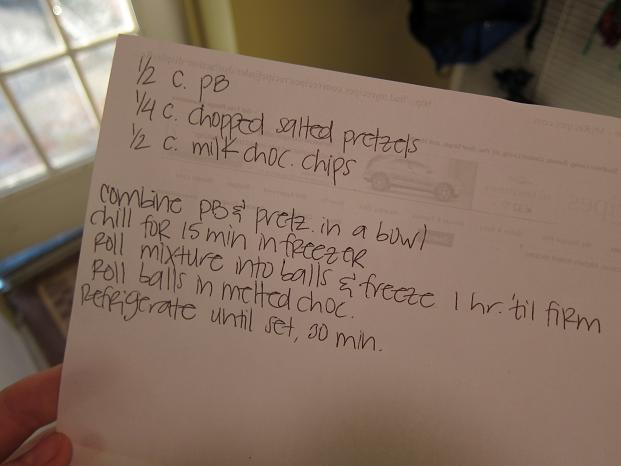 1/2 c. PB
1/4 c. chopped salted pretzels
1/2 c. milk choc. chips
combine PB & pretz. in a bowl
chill for 15 min in freezer
Roll mixture into balls & freeze 1 hr. 'til firm
Roll balls in melted choc.
Refrigerate until set, 30 min.